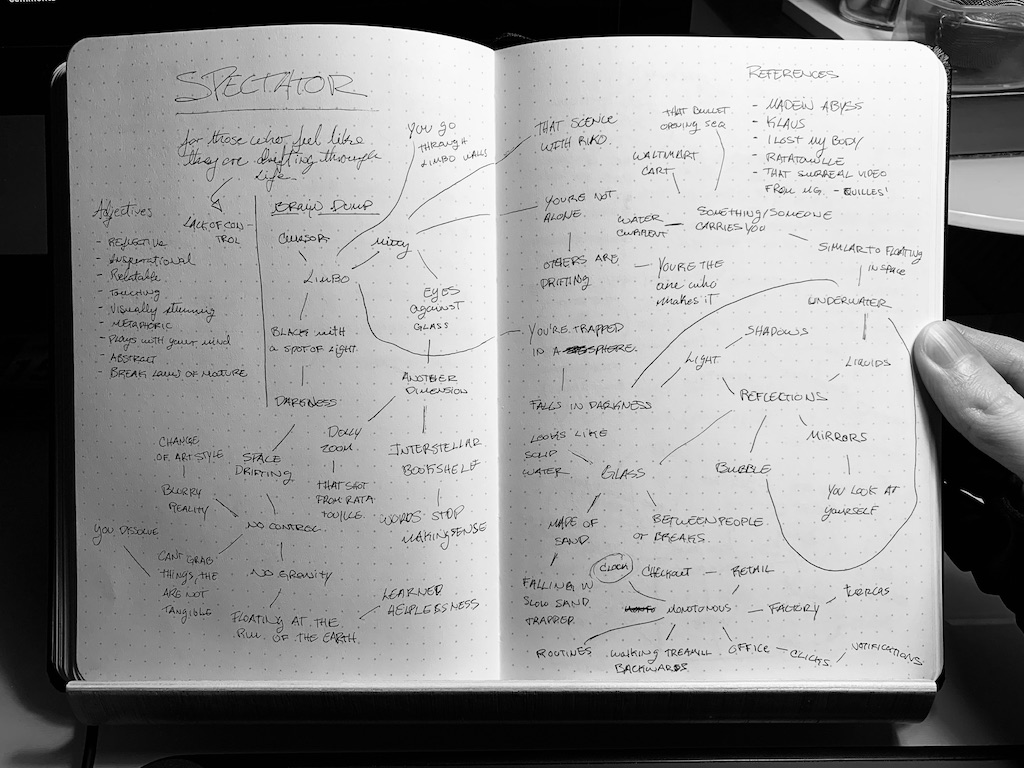 SPECTATOR
for those who feel like
they are drifting through
life.
Adjectives
- REFLECTIVE
- Inspirational
- Relatable
- Touching
- Visually stunning
- METAPHORIC
- Plays with your mind
- ABSTRACT
- BREAK LAWS OF NATURE
LACK OF CON-
TROL
BRAIN DUMP
YOU GO
THROUGH
LIMBO WALLS
LIMBO
BLACK with
a SPOT OF LIGHT.
DARKNESS
EYES
against
GLASS
ANOTHER
DIMENSION
INTERSTELLAR
BOOKSHELF
WORDS STOP
MAKING SENSE
DOLLY
ZOOM
THAT SHOT
FROM RATA
TOUILLE.
SPACE
DRIFTING
CHANGE
OF ART STYLE
BLURRY
REALITY
YOU DISSOLVE
NO CONTROL
CAN'T GRAB
THINGS, THE
ARE NOT
TANGIBLE
NO GRAVITY
FLOATING AT THE
OF THE EARTH.
LEARNED
HELPLESSNESS
REFERENCES
- MADE IN ABYSS
- KLAUS
- I LOST MY BODY
- RATATOUILLE
- THAT SURREAL VIDEO
FROM MG. - QUILLES'
THAT SCENCE
WITH RIKO.
THAT BULLET
OPENING SEQ
WALTMART
CART
YOU'RE NOT
ALONE.
WATER
CURRENT
SOMETHING/SOMEONE
CARRIES YOU
OTHERS ARE
DRIFTING
YOU'RE THE
one who
makes it
SIMILAR TO FLOATING
IN SPACE
UNDERWATER
YOU'RE TRAPPED
IN A SPHERE.
SHADOWS
LIGHT
LIQUIDS
FALLS IN DARKNESS
REFLECTIONS
LOOKS LIKE
SOLID
WATER
GLASS
BUBBLE
MIRRORS
YOU LOOK AT
yourself
MADE OF
SAND.
BETWEEN PEOPLE
OR BREAKS.
CLOCK
CHECKOUT
RETAIL
FALLING IN
SLOW SAND
TRAPPED.
MONOTONOUS
FACTORY
tuercas
ROUTINES
WALKING TREADMILL
BACKWARDS.
OFFICE
CLICKS
NOTIFICATIONS